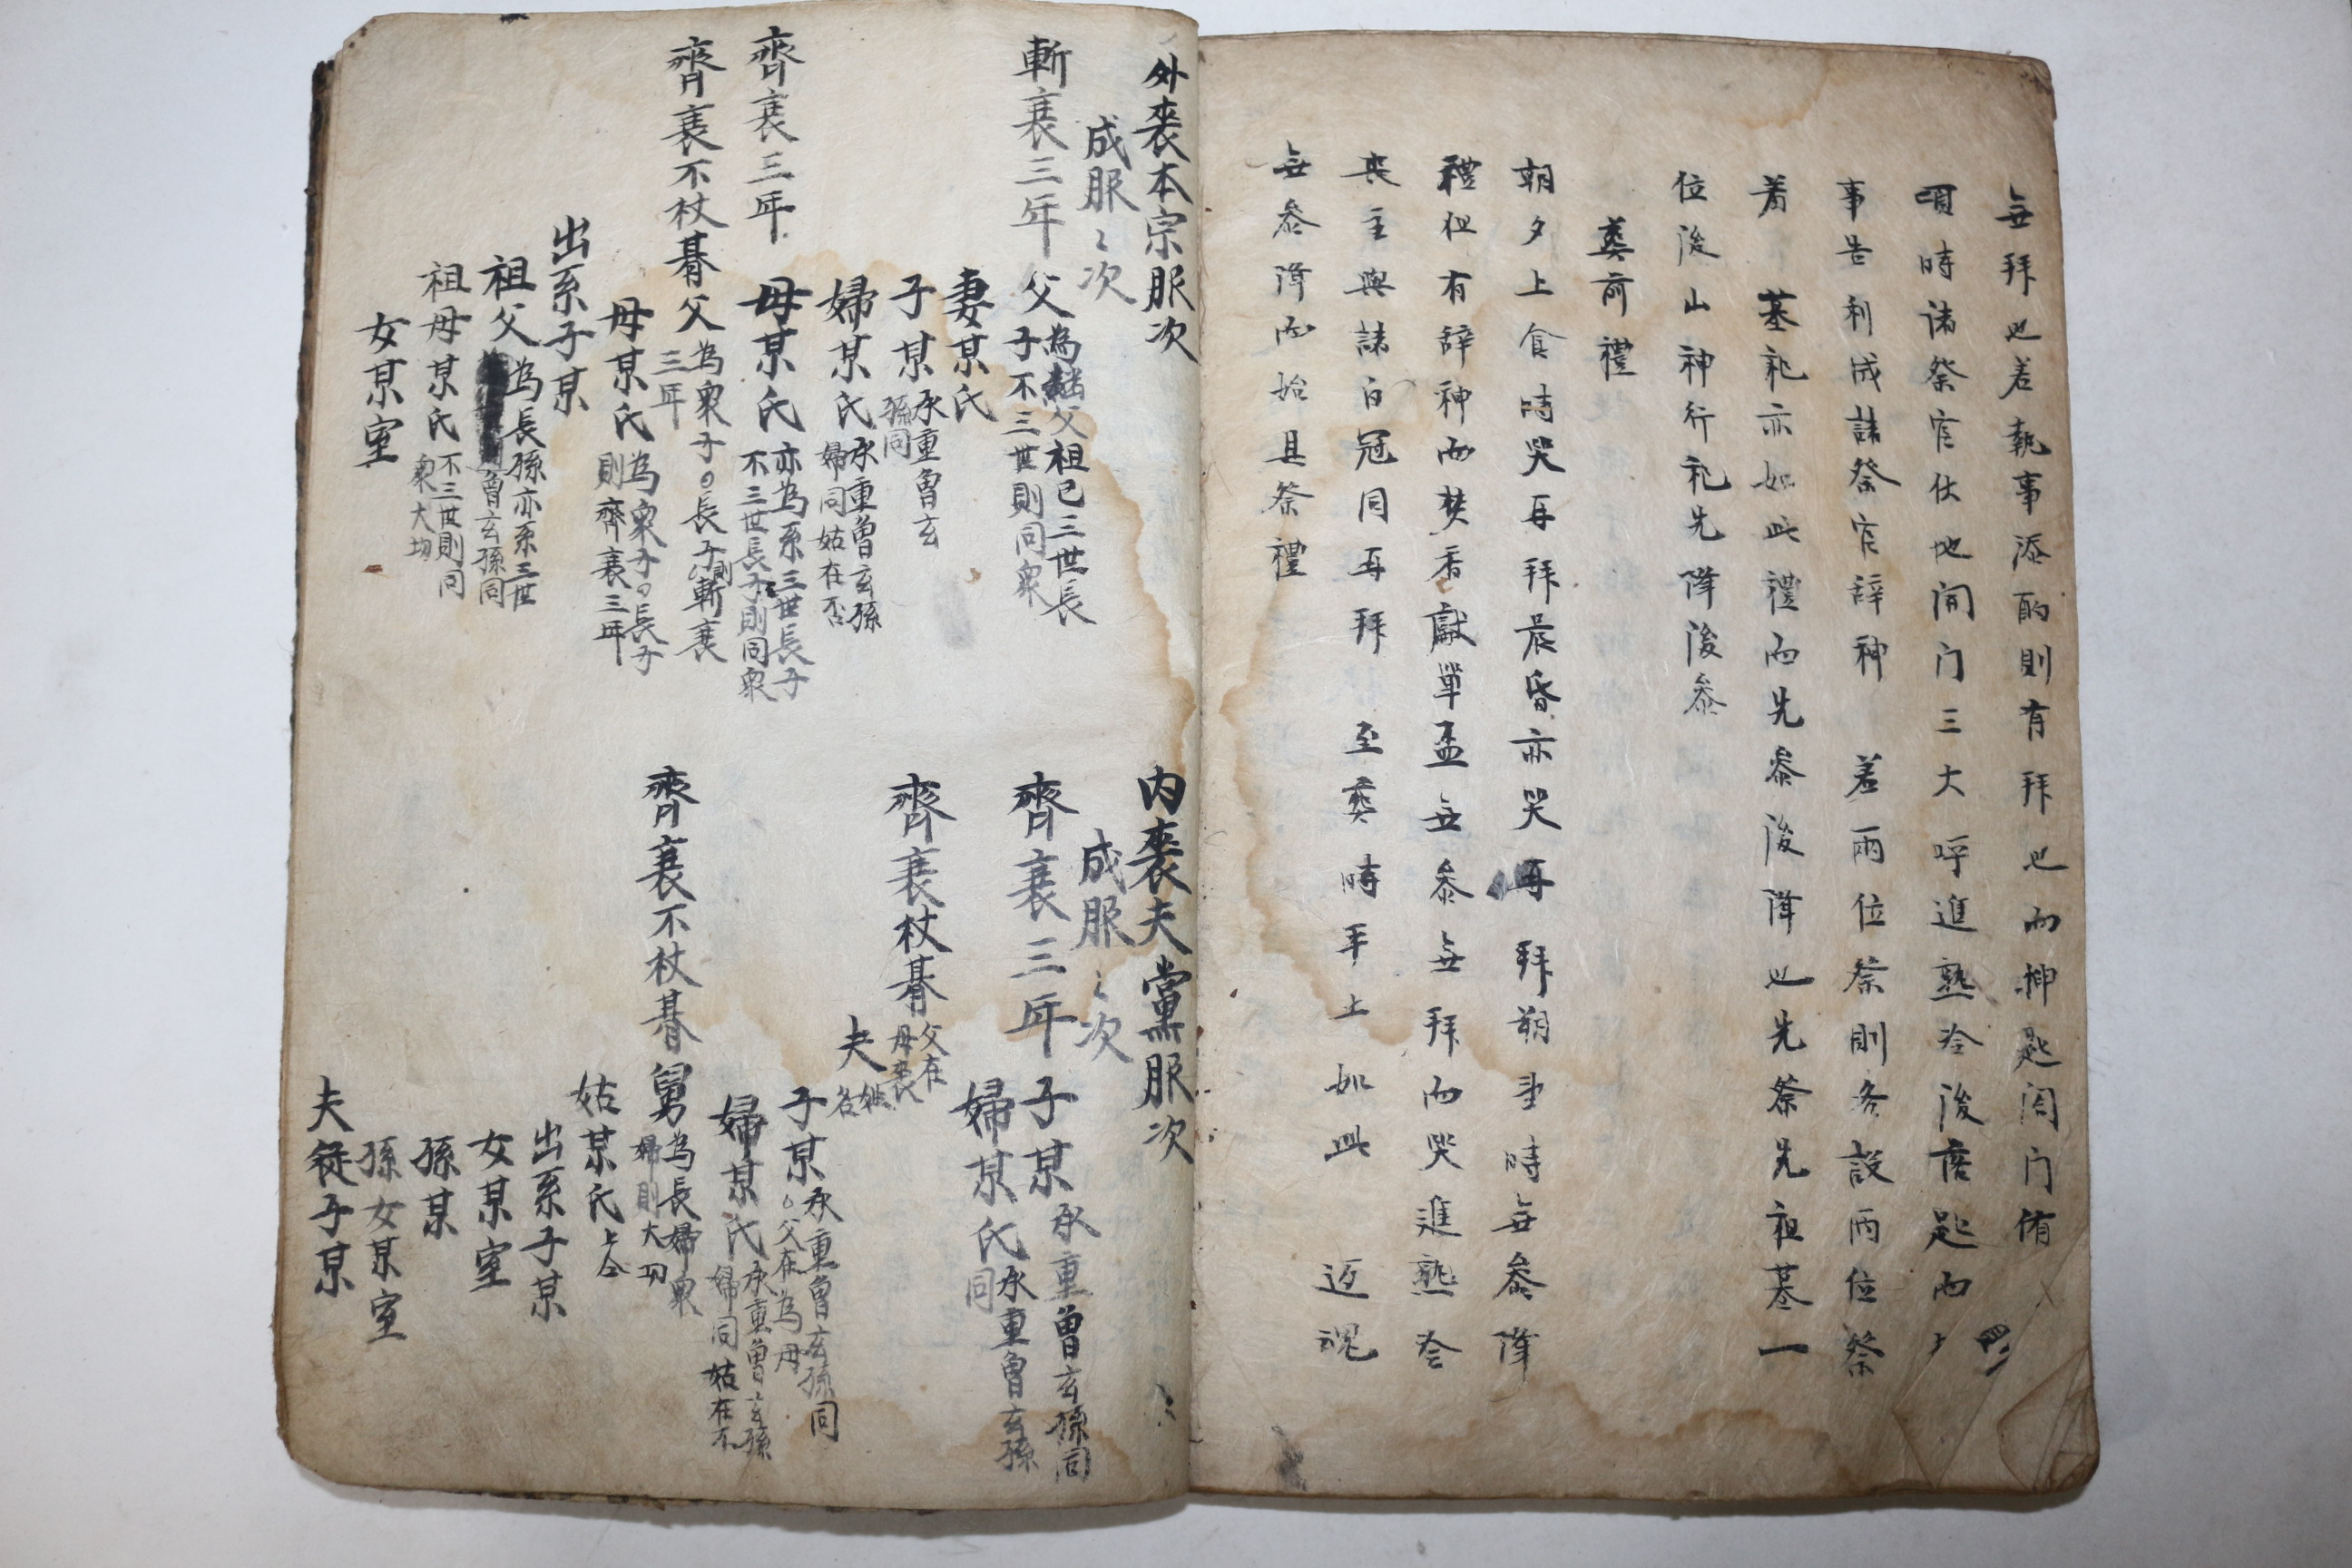 無拜也若執事添酌則有拜也而揷匙闔门侑
頃時諸祭官伏地開门三大呼進熟冷後落匙而
事告利成諸祭官辞神 若兩位祭則各設兩位祭
着 墓祀亦如此禮而先參後降也先祭先祖墓一
位後山神行祀先降後參
葬前禮
朝夕上食時哭再拜晨昏亦哭再拜朔望時無參降
禮但有辞神而焚香獻單盃無參無拜而哭進熟冷
喪主與諸白冠同再拜 至葬時平土如此 返魂
無參降而始具祭禮
外喪本宗服次
成服之次
斬衰三年 父 為繼父祖已三世長
子不三世則同衆
妻某氏
子某 承重曾玄
孫同
婦某氏 承重曾玄孫
婦同姑在否
齊衰三年 母某氏 亦為系三世長子
不三世長子則同衆
齊衰不杖朞 父 為衆子○長子則斬衰
三年
母某氏 為衆子○長子
則齊衰三年
出系子某
祖父 為長孫亦系三世
曾玄孫同
祖母某氏 不三世則同
衆大功
女某室
内喪夫黨服次
成服之次
齊衰三年 子某 承重曾玄孫同
婦某氏 承重曾玄孫
同
齊衰杖朞 父在
母喪
夫
子某 承重曾玄孫同
○父在為母
婦某氏 承重曾玄孫
婦同姑在不
齊衰不杖朞 舅 為長婦衆
婦則大功
姑某氏 上仝
出系子某
女某室
孫某
孫女某室
夫從子某